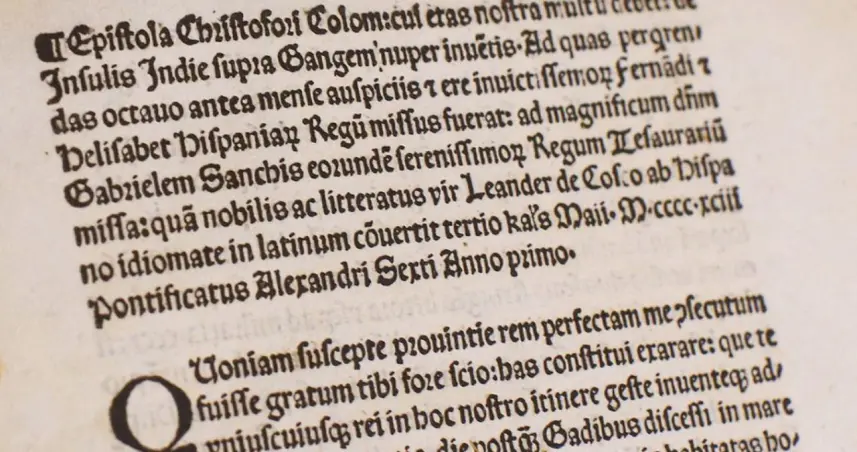 ¶ Epistola Christofori Colom: cui etas nostra multũ debet: de
Insulis Indie supra Gangem nuper inuẽtis. Ad quas perqren/
das octauo antea mense auspiciis ⁊ ere inuictissemoꝝ Fernãdi ⁊
Helisabet Hispaniaꝝ Regũ missus fuerat: ad magnificum dñm
Gabrielem Sanchis eorundẽ serenissimoꝝ Regum Tesaurariũ
missa: quã nobilis ac litteratus vir Leander de Cosco ab Hispa
no idiomate in latinum cõuertit tertio kal's Maii. M.cccc.xciii
Pontificatus Alexandri Sexti Anno primo.
QUoniam suscepte prouintie rem perfectam me ↄsecutum
fuisse gratum tibi fore scio: has constitui exarare: que te
vniuscuiusqꝫ rei in hoc nostro itinere geste inuenteqꝫ ad/
die postqꝫ̃ Gadibus discessi in mare
habitatas ho/